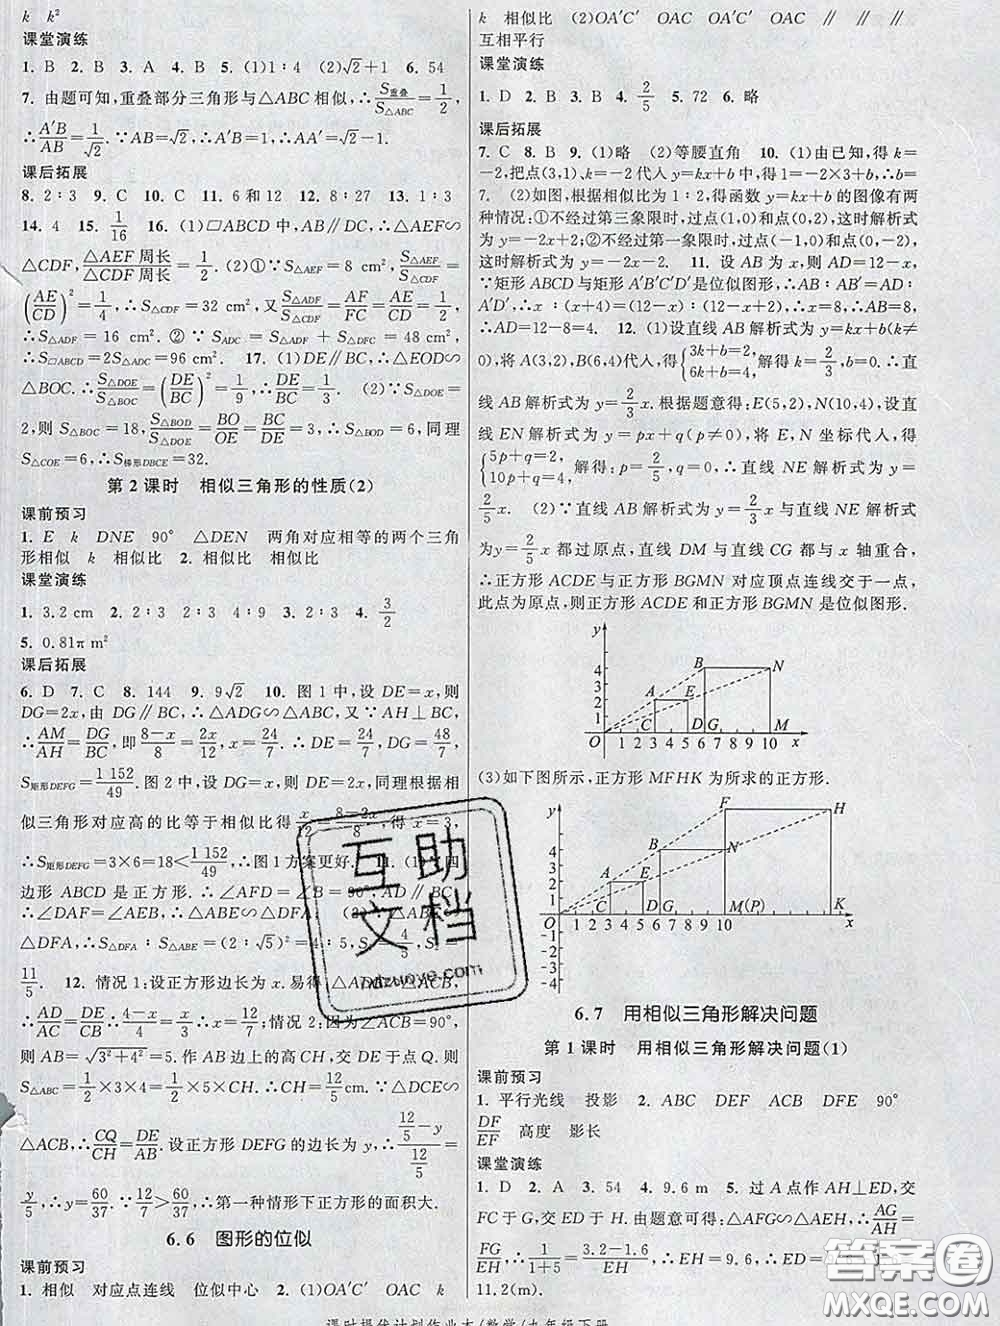 k k²
课堂演练
1. B 2. B 3. A 4. B 5. (1)1∶4 (2)√2+1 6. 54
7. 由题可知,重叠部分三角形与△ABC相似,∴S重叠/S△ABC=1/2,
∴A′B/AB=1/√2. ∵AB=√2,∴A′B=1,∴AA′=√2-1.
课后拓展
8. 2∶3 9. C 10. C 11. 6和12 12. 8∶27 13. 1∶3
14. 4 15. 1/16 16. (1)▱ABCD中,AB∥DC,∴△AEF∽
△CDF,△AEF周长/△CDF周长=1/2. (2)①∵S△AEF=8 cm²,S△AEF/S△CDF=
(AE/CD)²=1/4,∴S△CDF=32 cm²,又S△ADF/S△CDF=AF/FC=AE/CD=1/2,
∴S△ADF=16 cm². ②∵S△ADC=S△ADF+S△DFC=48 cm²,
∴S▱ABCD=2S△ADC=96 cm². 17. (1)DE∥BC,∴△EOD∽
△BOC.∴S△DOE/S△BOC=(DE/BC)²=1/9,∴DE/BC=1/3. (2)∵S△DOE=
2,则S△BOC=18,S△BOD/S△DOE=BO/OE=BC/DE=3,∴S△BOD=6,同理
S△COE=6,∴S梯形DBCE=32.
第2课时 相似三角形的性质(2)
课前预习
1. E k DNE 90° △DEN 两角对应相等的两个三角
形相似 k 相似比 2. 相似比 相似比
课堂演练
1. 3.2 cm 2. 2∶3 2∶3 4∶9 3. 2∶3 4. 3/2
5. 0.81π m²
课后拓展
6. D 7. C 8. 144 9. 9√2 10. 图1中,设DE=x,则
DG=2x,由DG∥BC,∴△ADG∽△ABC,又∵AH⊥BC,
∴AM/AH=DG/BC,即(8-x)/8=2x/12,x=24/7.∴DE=24/7,DG=48/7,
S矩形DEFG=1152/49.图2中,设DG=x,则DE=2x,同理根据相
似三角形对应高的比等于相似比得x/12=(8-2x)/8,得x=3,
∴S矩形DEFG=3×6=18<1152/49,∴图1方案更好. 11. (1)∵四
边形ABCD是正方形.∴∠AFD=∠B=90°,AD∥BC,
∴∠DAF=∠AEB,∴△ABE∽△DFA; (2)△ABE∽
△DFA,∴S△DFA∶S△ABE=(2∶√5)²=4∶5,
11/5. 12. 情况1:设正方形边长为x.易得△ADE∽△ACB,
∴AD/AC=DE/CB∴(4-x)/4=x/3∴x=12/7;情况2:因为∠ACB=90°,
则AB=√(3²+4²)=5.作AB边上的高CH,交DE于点Q.易得
S△ABC=1/2×3×4=1/2×5×CH.∴CH=12/5cm.∵△DCE∽
△ACB,∴CQ/CH=DE/AB.设正方形DEFG的边长为y,∴(12/5-y)/(12/5)=
y/5,∴y=60/37. ∵12/7>60/37,∴第一种情形下正方形的面积大.
6.6 图形的位似
课前预习
1. 相似 对应点连线 位似中心 2. (1)OA′C′ OAC k
k 相似比 (2)OA′C′ OAC OA′C′ OAC ∥ ∥ ∥
互相平行
课堂演练
1. D 2. B 3. B 4. 2/5 5. 72 6. 略
课后拓展
7. C 8. B 9. (1)略 (2)等腰直角 10. (1)由已知,得k=
-2,把点(3,1)、k=-2代入y=kx+b中,得1=-2×3+b,b=
7. (2)如图,根据相似比为1∶2,得函数y=kx+b的图像有两
种情况:①不经过第三象限时,过点(1,0)和点(0,2),这时解析式
为y=-2x+2;②不经过第一象限时,过点(-1,0)和点(0,-2),
这时解析式为y=-2x-2. 11. 设AB为x,则AD=12-x,
∵矩形ABCD与矩形A′B′C′D′是位似图形,∴AB∶AB′=AD∶
AD′,∴x∶(x+4)=(12-x)∶(12-x+2),∴x=8,∴AB=8,
∴AD=12-8=4. 12. (1)设直线AB解析式为y=kx+b(k≠
0),将A(3,2),B(6,4)代入,得{3k+b=2, 6k+b=4, 解得k=2/3,b=0,∴直
线AB解析式为y=2/3x.根据题意得:E(5,2),N(10,4),设直
线EN解析式为y=px+q(p≠0),将E,N坐标代入,得
{5p+q=2, 10p+q=4, 解得:p=2/5,q=0,∴直线NE解析式为y=
2/5x. (2)∵直线AB解析式为y=2/3x与直线NE解析式
为y=2/5x都过原点,直线DM与直线CG都与x轴重合,
∴正方形ACDE与正方形BGMN对应顶点连线交于一点,
此点为原点,则正方形ACDE和正方形BGMN是位似图形.
y
4 B N
3
2 A E
1 C D G M
O 1 2 3 4 5 6 7 8 9 10 x
(3)如下图所示,正方形MFHK为所求的正方形.
y F H
4 B N
3
2 A E
1 C D G M(P) K
O 1 2 3 4 5 6 7 8 9 10 x
-1
-2
-3
-4
6.7 用相似三角形解决问题
第1课时 用相似三角形解决问题(1)
课前预习
1. 平行光线 投影 2. ABC DEF ACB DFE 90°
DF/EF 高度 影长
课堂演练
1. D 2. A 3. 54 4. 9.6 m 5. 过A点作AH⊥ED,交
FC于G,交ED于H.由题意可得:△AFG∽△AEH,∴AG/AH=
FG/EH,∴1/(1+5)=(3.2-1.6)/EH,∴EH=9.6,∴ED=9.6+1.6=
11.2(m).
课时提优计划作业本/数学/九年级下册
互助文档
hdzuoye.com
答案圈